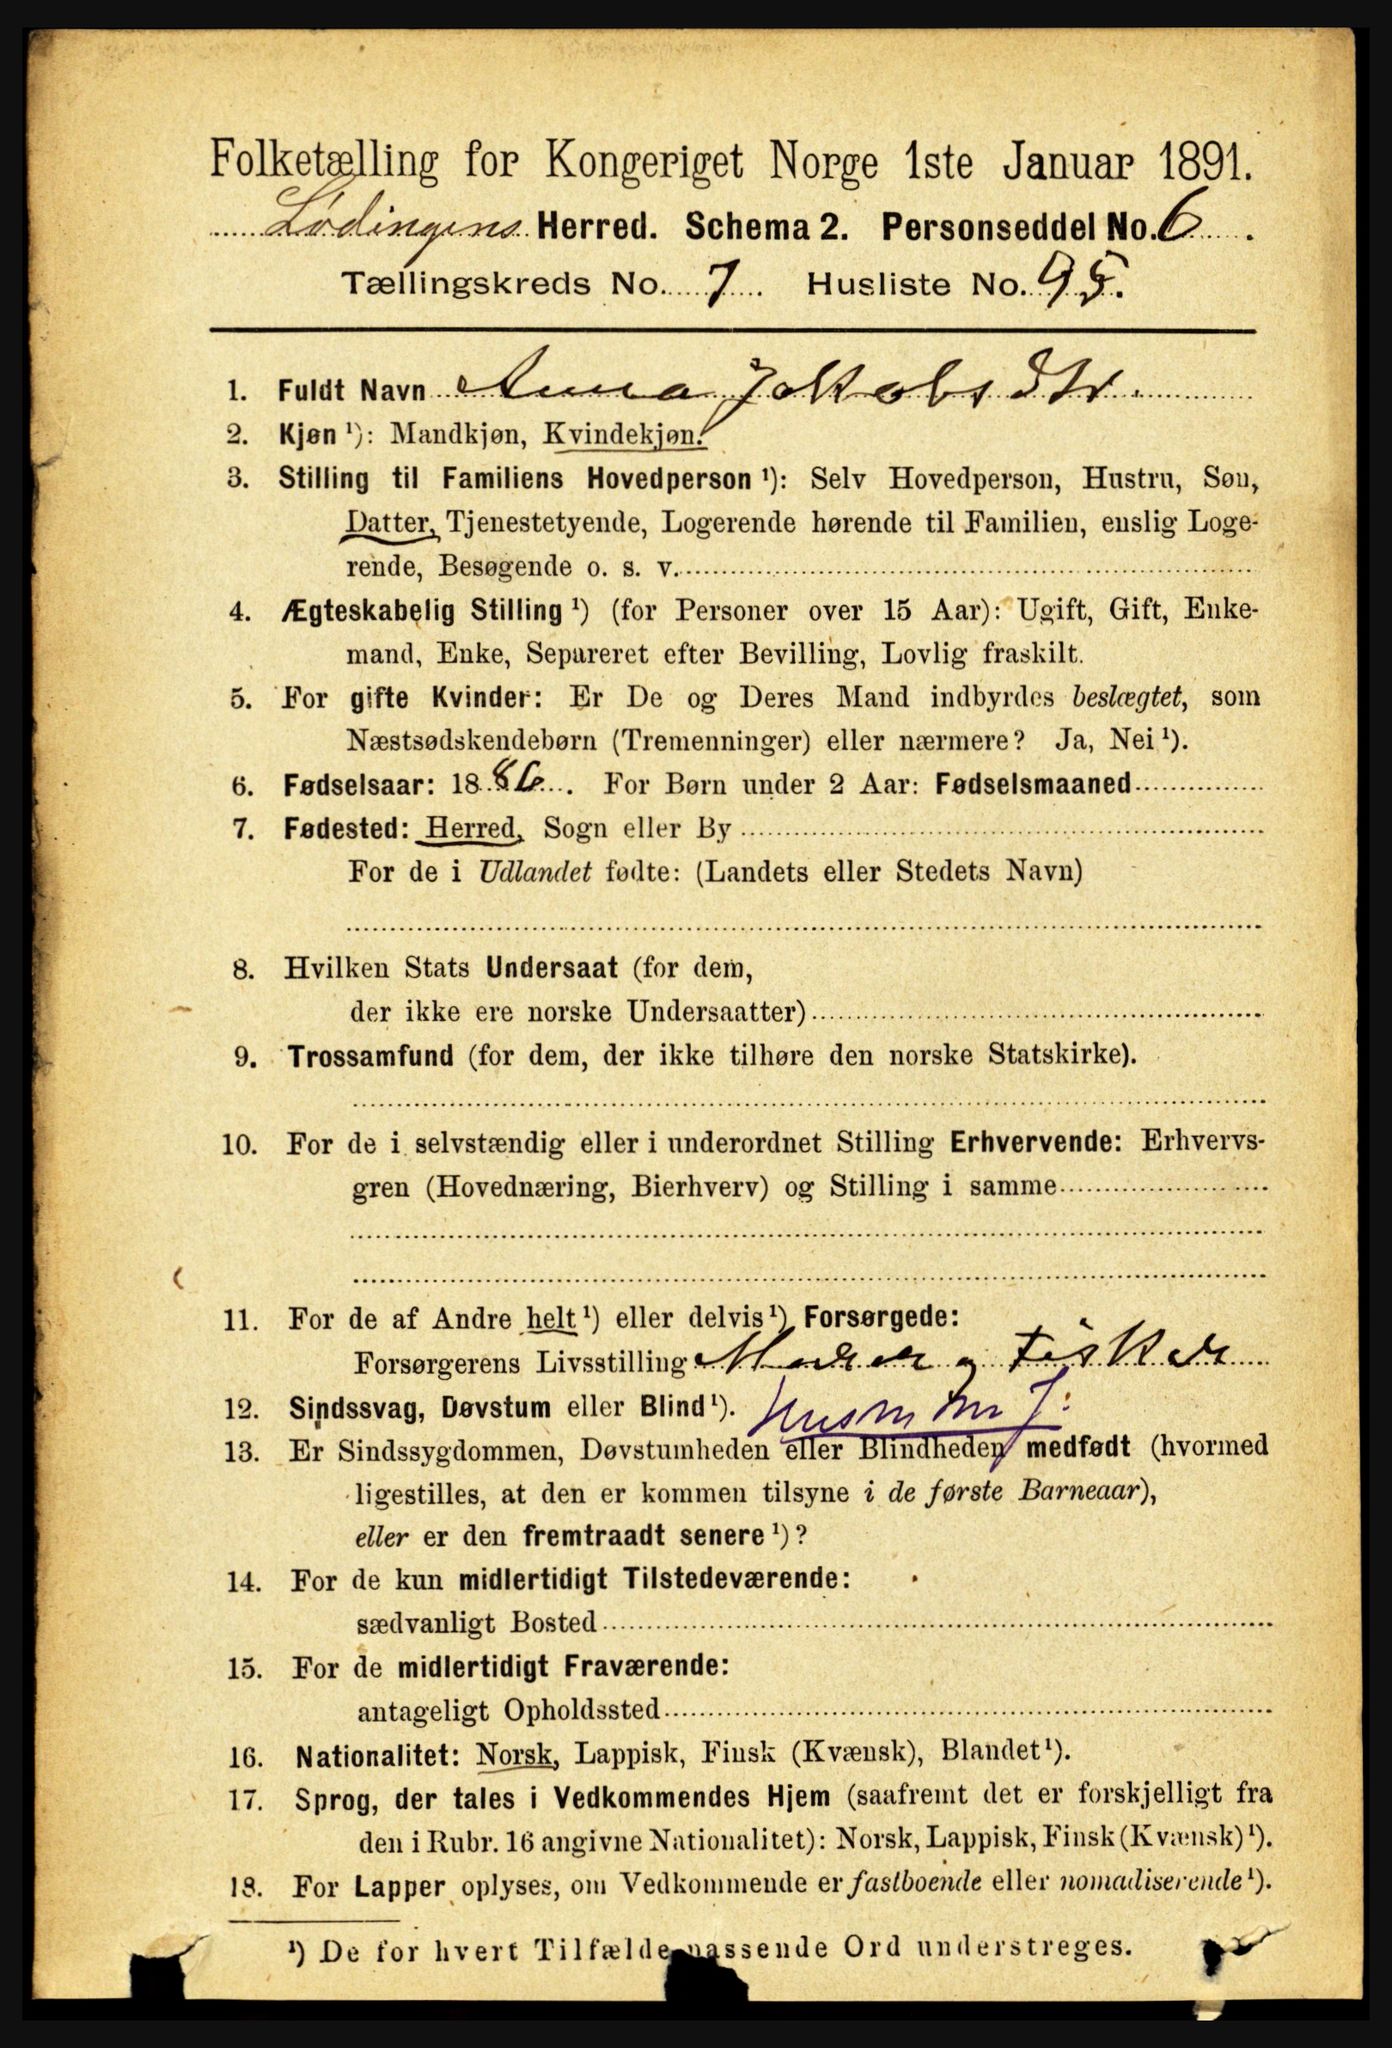 Folketælling for Kongeriget Norge 1ste Januar 1891.
Lødingens Herred. Schema 2. Personseddel No. 6.
Tællingskreds No. 7. Husliste No. 95.
1. Fuldt Navn Anna Jakobsdtr.
2. Kjøn ¹): Mandkjøn, Kvindekjøn.
3. Stilling til Familiens Hovedperson ¹): Selv Hovedperson, Hustru, Søn,
Datter, Tjenestetyende, Logerende hørende til Familien, enslig Loge-
rende, Besøgende o. s. v.
4. Ægteskabelig Stilling ¹) (for Personer over 15 Aar): Ugift, Gift, Enke-
mand, Enke, Separeret efter Bevilling, Lovlig fraskilt.
5. For gifte Kvinder: Er De og Deres Mand indbyrdes beslægtet, som
Næstsødskendebørn (Tremenninger) eller nærmere? Ja, Nei ¹).
6. Fødselsaar: 1886. For Børn under 2 Aar: Fødselsmaaned
7. Fødested: Herred, Sogn eller By
For de i Udlandet fødte: (Landets eller Stedets Navn)
8. Hvilken Stats Undersaat (for dem,
der ikke ere norske Undersaatter)
9. Trossamfund (for dem, der ikke tilhøre den norske Statskirke).
10. For de i selvstændig eller i underordnet Stilling Erhvervende: Erhvervs-
gren (Hovednæring, Bierhverv) og Stilling i samme
11. For de af Andre helt ¹) eller delvis ¹) Forsørgede:
Forsørgerens Livsstilling og Fisker
12. Sindssvag, Døvstum eller Blind ¹). Husm m J:
13. Er Sindssygdommen, Døvstumheden eller Blindheden medfødt (hvormed
ligestilles, at den er kommen tilsyne i de første Barneaar),
eller er den fremtraadt senere ¹)?
14. For de kun midlertidigt Tilstedeværende:
sædvanligt Bosted
15. For de midlertidigt Fraværende:
antageligt Opholdssted
16. Nationalitet: Norsk, Lappisk, Finsk (Kvænsk), Blandet ¹).
17. Sprog, der tales i Vedkommendes Hjem (saafremt det er forskjelligt fra
den i Rubr. 16 angivne Nationalitet): Norsk, Lappisk, Finsk (Kvænsk) ¹).
18. For Lapper oplyses, om Vedkommende er fastboende eller nomadiserende ¹).
¹) De for hvert Tilfælde passende Ord understreges.